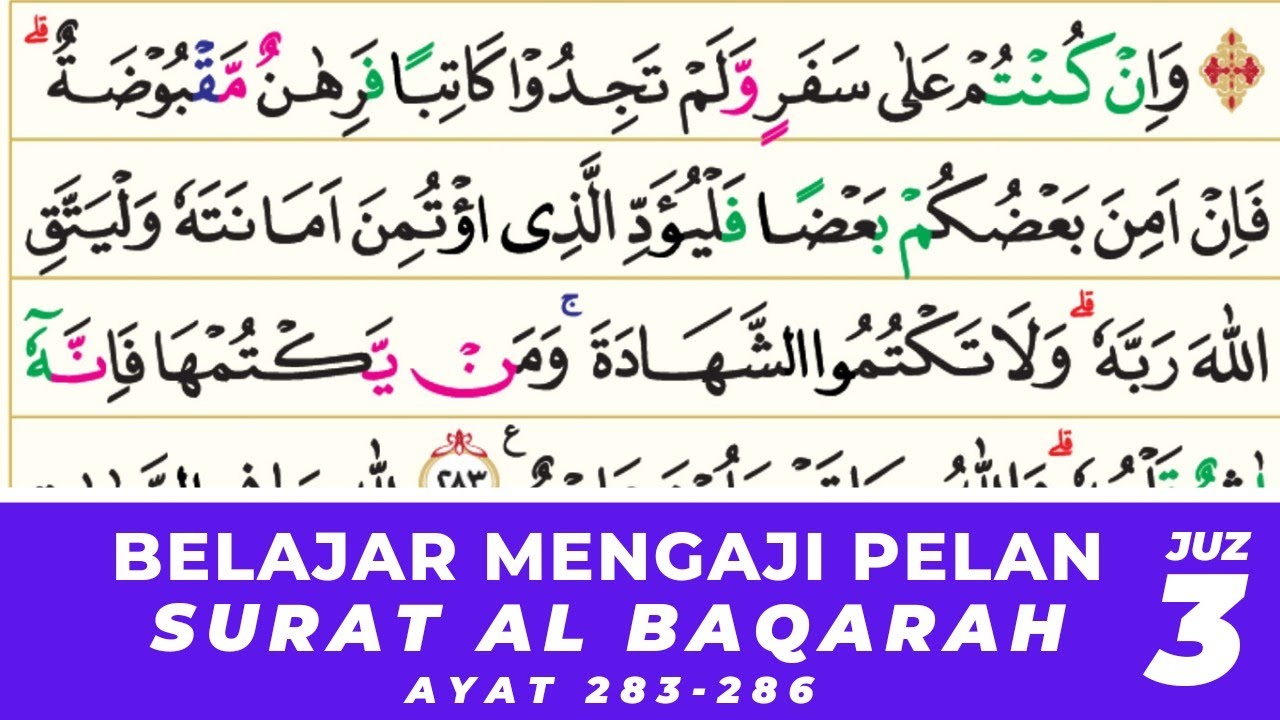 وَاِنْ كُنْتُمْ عَلٰى سَفَرٍ وَّلَمْ تَجِدُوْا كَاتِبًا فَرِهٰنٌ مَّقْبُوْضَةٌ ۗ
فَاِنْ اَمِنَ بَعْضُكُمْ بَعْضًا فَلْيُؤَدِّ الَّذِى اؤْتُمِنَ اَمَانَتَهٗ وَلْيَتَّقِ
اللّٰهَ رَبَّهٗ ۗ وَلَا تَكْتُمُوا الشَّهَادَةَ ۚ وَمَنْ يَّكْتُمْهَا فَاِنَّهٗٓ
BELAJAR MENGAJI PELAN
SURAT AL BAQARAH
AYAT 283-286
JUZ
3